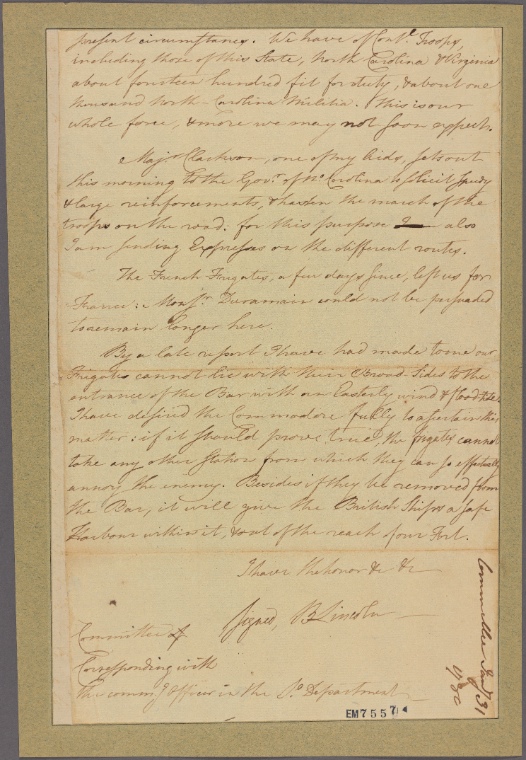 present circumstances. We have of Contl. Troops,
including those of this State, North Carolina & Virginia
about fourteen hundred fit for duty, & about one
thousand North-Carolina Militia. This is our
whole force, & more we may not soon expect.
Majr. Clarkson, one of my Aids, sets out
this morning to the Govr. of No. Carolina to solicit speedy
& large reinforcements, & hasten the march of the
troops on the road: for this purpose also
I am sending Expresses on the different routes.
The French Frigates, a few days since, left us for
France: Monsr. Duramain could not be persuaded
to remain longer here.
By a late report I have had made to me our
Frigates cannot lie with their Broad Sides to the
entrance of the Bar with an Easterly wind & flood tide.
I have desired the Commodore fully to ascertain this
matter: if it should prove true, the frigates cannot
take any other station from which they can so effectually
annoy the enemy. Besides if they be removed from
the Bar, it will give the British Ships a safe
Harbour within it, & out of the reach of our Fort.
I have the honor &c &c
Signed, B Lincoln
Committee of
Corresponding with
the commg. Officer in the So. Department
Committee Jany 31
1780
EM7557